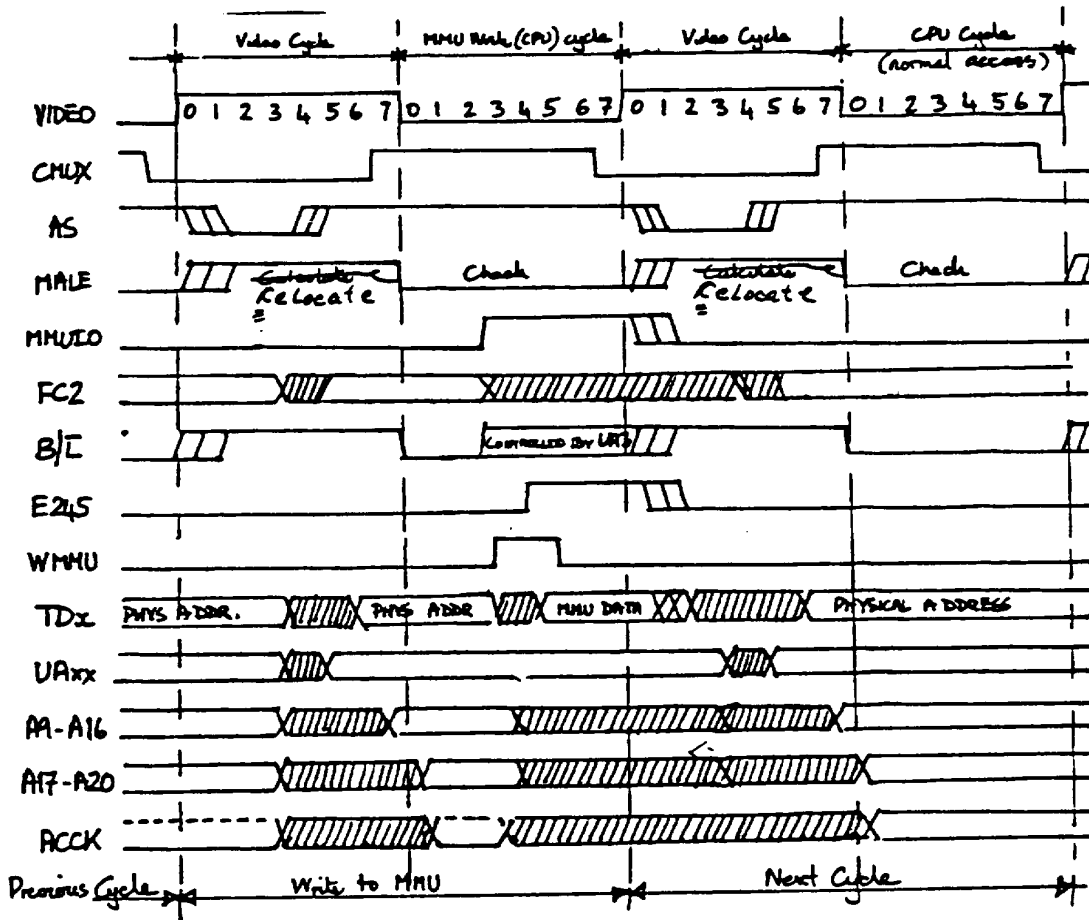 Video Cycle
MMU Write (CPU) cycle
Video Cycle
CPU Cycle
(normal access)
VIDEO 0 1 2 3 4 5 6 7 0 1 2 3 4 5 6 7 0 1 2 3 4 5 6 7 0 1 2 3 4 5 6 7
CMUX
AS
MALE Calculate Check Calculate Check
Relocate Relocate
MMUIO
FC2
B/I CONTROLLED BY
E245
WMMU
TDx PHYS ADDR. PHYS ADDR MMU DATA PHYSICAL ADDRESS
UAxx
A9-A16
A17-A20
ACCK
Previous Cycle Write to MMU Next Cycle